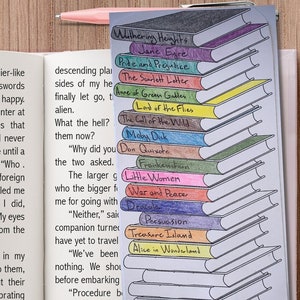 ier-like
swords
happy.
nter at
s that
I never
e until a
"Who .
foreign
led me
I did,
My eyes
from the
in my
o them,
t their
descending plan
sides of my he
finally let go, t
alien.
What the hell?
them now?
"Why did you
the two asked.
The larger g
who the bigger fo
me for going with
"Neither," said
companion turned
have yet to travel
"We've been
nothing. We shou
before embarking
"Procedure b
Wuthering Heights
Jane Eyre
Pride and Prejudice
The Scarlett Letter
Anne of Green Gables
Lord of the Flies
The Call of the Wild
Moby Dick
Don Quixote
Frankenstein
Little Women
War and Peace
Dracula
Persuasion
Treasure Island
Alice in Wonderland